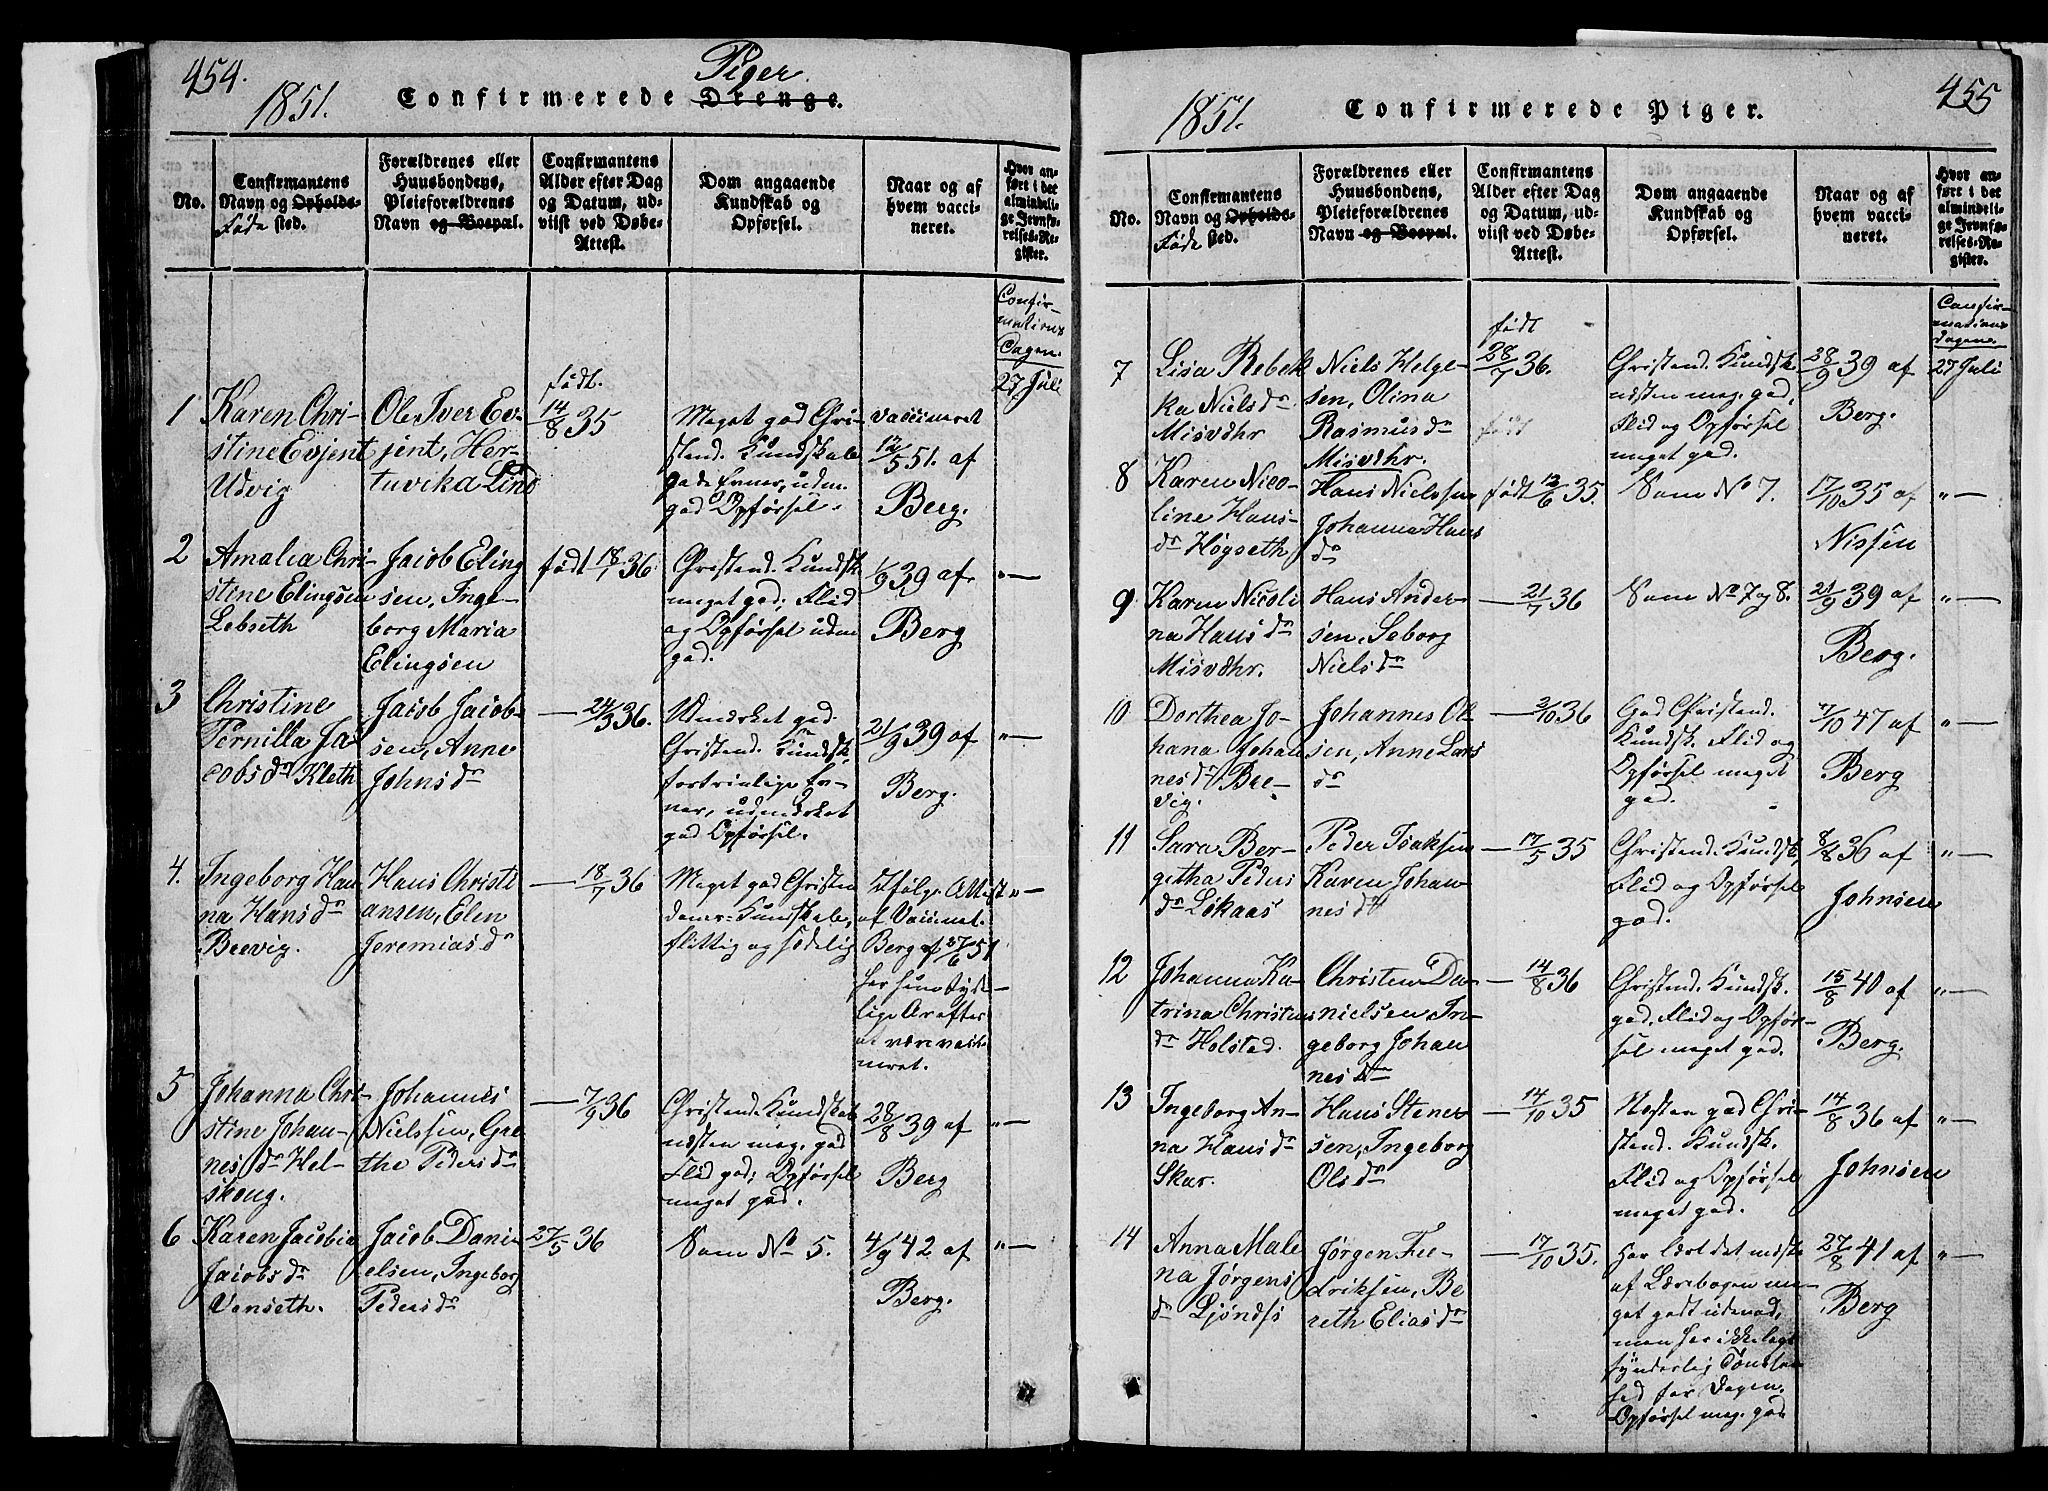 454.
1851.
Confirmerede Drenge.
Piger.
No.
Confirmantens
Navn og Opholds-
Føde sted.
Forældrenes eller
Huusbondens,
Pleieforældrenes
Navn og Boepæl.
Confirmantens
Alder efter Dag
og Datum, ud-
viist ved Døbe-
Attest.
Dom angaaende
Kundskab og
Opførsel.
Naar og af
hvem vacci-
neret.
Hvor an-
ført i det
almindeli-
ge Jevnfø-
relses-Re-
gister.
Confir-
mations
Dagen.
27 Juli
1
Karen Chri-
stine Evjent
Udvig
Ole Iver Ev-
jent, Her-
tuvika Lind
født.
14/8 35
Meget god Chri-
stend. Kundskab
gode Evner, uden
god Opførsel.
vaccineret
12/5 51. af
Berg.
2
Amalia Chri-
stine Elingsen
Lebseth
Jacob Eling
sen, Inge-
borg Maria
Elingsen
født 18/1 36
Christend. Kundsk
meget god; Flid
og Opførsel uden
god.
1/9 39 af
Berg
"—
3
Christine
Pernilla Ja
cobs dr Kleth
Jacob Jacob-
sen, Anne
Johns dr
— 24/3 36.
Udmærket god
Christend. Kundsk,
fortrinlige Ev-
ner, udmærket
god Opførsel.
21/9 39 af
Berg.
"—
4.
Ingeborg Han
na Hans dr
Beevig.
Hans Christi
ansen, Elen
Jeremias dr
— 18/7 36
Meget god Christen
doms-Kundskab,
flittig og sædelig
Ifølge Attest
af Vaccinat.
Berg af 27/6 51
har hun tyde-
lige Ar efter
at være vacci-
neret.
"—
5
Johanna Chri-
stine Johan-
nes dr Hel-
skoug.
Johannes
Nielssen, Gre
the Peders dr
— 7/9 36
Christend. Kundskab
næsten meg. god
Flid god; Opførsel
meget god.
28/8 39 af
Berg
"—
6
Karen Jacobia
Jacobs dr
Vanseth.
Jacob Dani-
elsen, Ingeborg
Peders dr
27/5 36
Som No 5.
4/9 42 af
Berg.
"—
455
1851.
Confirmerede Piger.
No.
Confirmantens
Navn og Opholds-
Føde sted.
Forældrenes eller
Huusbondens,
Pleieforældrenes
Navn og Boepæl.
Confirmantens
Alder efter Dag
og Datum, ud-
viist ved Døbe-
Attest.
Dom angaaende
Kundskab og
Opførsel.
Naar og af
hvem vacci-
neret.
Hvor an-
ført i det
almindeli-
ge Jevnfø-
relses-Re-
gister.
Confir-
mations
dagen.
27 Juli
7
Lisa Rebek
ka Niels dr
Misvdhr
Niels Helge-
sen, Olina
Rasmus dr
Misvdhr.
født
28/7 36.
født
Christend. Kundsk
næsten meg. god,
Flid og Opførsel
meget god.
28/9 39 af
Berg.
8
Karen Nico-
line Hans-
dr Høgseth
Hans Nielssen
Johanna Hans
dr
født 12/6 35.
Som No 7.
17/10 35 af
Nissen
"—
9
Karen Nicoli
na Hans dr
Misvdhr.
Hans Ander-
sen, Seborg
Niels dr
— 21/7 36
Som No 7 og 8.
21/9 39 af
Berg.
"—
10
Dorthea Jo-
hana Johan
nes dr Bre-
vig.
Johannes Ol
sen, Anne Lars
dr
— 2/10 36
God Christend.
Kundsk. Flid og
Opførsel meget
god.
7/10 47 af
Berg
"—
11
Sara Ber-
getha Peders
dr Løkaas
Peder Isaksen
Karen Johan-
nes dr
— 17/5 35
Christend. Kundsk,
Flid og Opførsel
god.
8/8 36 af
Johnsen
"—
12
Johanna Ka-
trina Christens
dr Holstad.
Christen Da-
nielsen In-
geborg Johan
nes dr
— 14/8 36
Christend. Kundsk.
god, Flid og Opfør-
sel meget god.
15/8 40 af
Berg.
"—
13
Ingeborg An-
na Hans dr
Skar.
Hans Stener
sen, Ingeborg
Ols dr
— 14/10 35
Næsten god Chri-
stend. Kundsk.
Flid og Opførsel
meget god.
14/8 36 af
Johnsen
"—
14
Anna Male
na Jørgens
dr Ljøndfs
Jørgen Fre-
driksen, Be
reth Elias dr
— 17/10 35.
Har lært det meste
af Lærebogen me-
get godt udenad,
men har ikke lagt
synderlig
for Dagen.
Opførsel meg. god
27/8 41 af
Berg
"—